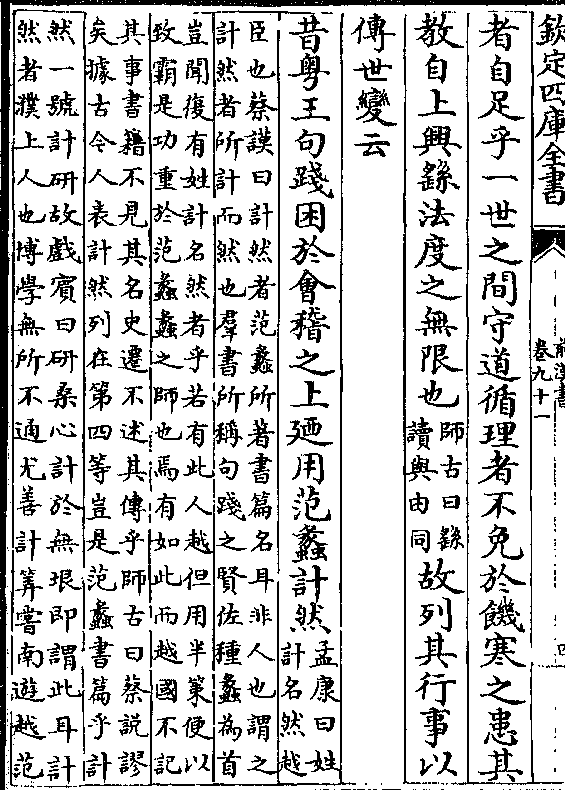 欽定四庫全書
前漢書
卷九十一
者自足乎一世之間守道循理者不免於饑寒之患其
教自上興繇法度之無限也師古曰繇讀與由同故列其行事以
傳世變云
昔粤王句踐困於會稽之上廼用范蠡計然孟康曰姓計名然越
臣也蔡謨曰計然者范蠡所著書篇名耳非人也謂之
計然者所計而然也羣書所稱句踐之賢佐種蠡為首
豈聞復有姓計名然者乎若有此人越但用半策便以
致霸是功重於范蠡蠡之師也焉有如此而越國不記
其事書籍不見其名史遷不述其傳乎師古曰蔡說謬
矣據古今人表計然列在第四等豈是范蠡書篇乎計
然一號計研故戲賓曰研桑心計於無垠即謂此耳計
然者濮上人也博學無所不通尤善計筭嘗南遊越范